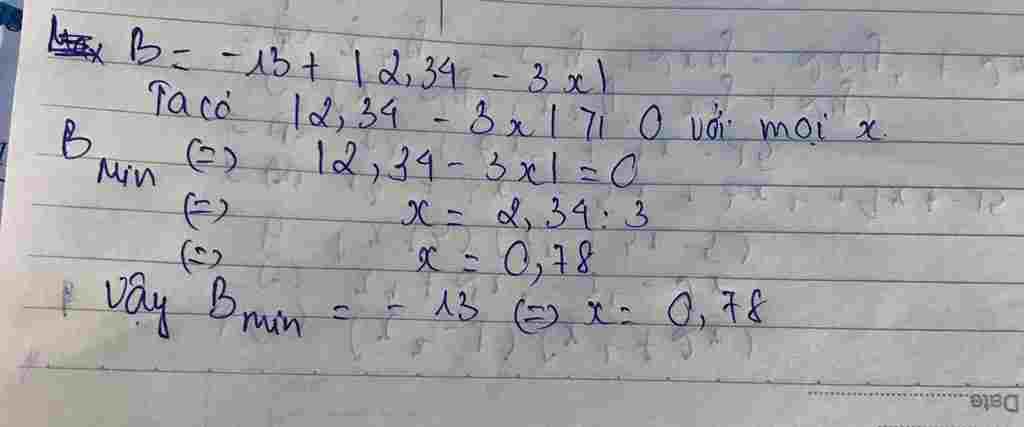 B = -13 + |2,34 - 3x|
Ta có |2,34 - 3x| ≥ 0 với mọi x.
B min (=) |2,34 - 3x| = 0
(=) x = 2,34 : 3
(=) x = 0,78
Vậy B min = - 13 (=) x = 0,78
Date